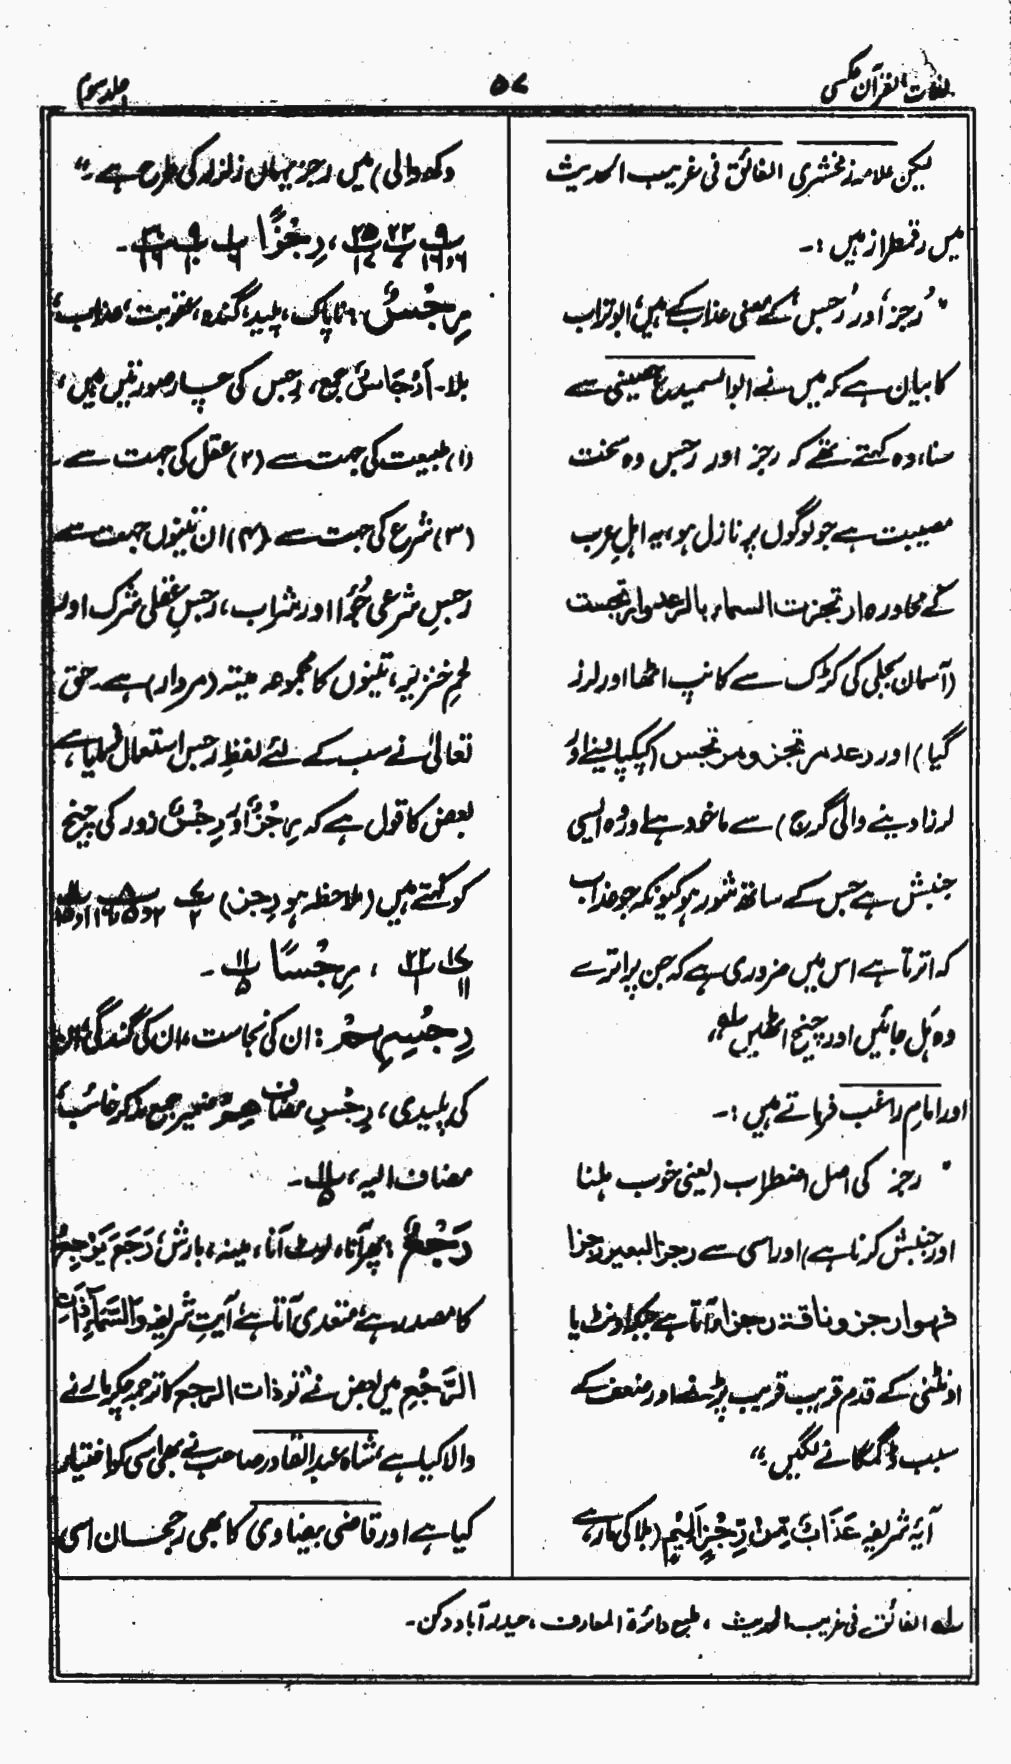 لغات القرآن مکسی
۵۷
جلد سوم
لیکن علامہ زمخشری الفائق فی غریب الحدیث
میں رقمطراز ہیں :۔
"رُجز، اور رُجس، کے معنی عذاب کے ہیں، ابو تراب
کا بیان ہے کہ میں نے ابوالسمیدع حصینی سے
سنا، وہ کہتے تھے کہ رجز اور رجس وہ سخت
مصیبت ہے جو لوگوں پر نازل ہو، یہ اہلِ عرب
کے محاورہ ارتجزت السماء بالرعد وارتجست
(آسمان بجلی کی کڑک سے کانپ اٹھا اور لرز
گیا) اور رعد مرتجز و مرتجس (کپکپا دینے اور
لرزا دینے والی گرج) سے ماخوذ ہے اور وہ ایسی
جنبش ہے جس کے ساتھ شور ہو کیونکہ جو عذاب
کہ اترتا ہے اس میں ضروری ہے کہ جن پر اترے
وہ ہَل جائیں اور چیخ اٹھیں ؎"
اور امام راغب فرماتے ہیں :۔
"رجز کی اصل اضطراب (یعنی خوب ہلنا
اور جنبش کرنا ہے) اور اسی سے رجز البعیر رجزا
فهو ارجز وناقۃ رجزاء آتا ہے جبکہ اونٹ یا
اونٹنی کے قدم قریب قریب پڑنے اور ضعف کے
سبب ڈگمگانے لگیں۔"
آیۂ شریفہ عَذَابٌ مِّنْ رِّجْزٍ اَلِيْمٍ (بلا کی مار ہے
دکھ والی) میں رجز یہاں زلزلہ کی طرح ہے۔"
پ۹ ۶و۱۶ پ۲۲ ۷ پ۲۵ ۱۷، رِجْزًا پ۱ ۶ پ۹ ۱۰ پ۲۰ ۱۶۔
رِجْسٌ، ناپاک، پلید، گندہ، عقوبت، عذاب،
بلا۔ اَرْجَاسٌ جمع، رجس کی چار صورتیں ہیں،
(۱) طبیعت کی جہت سے (۲) عقل کی جہت سے۔
(۳) شرع کی جہت سے (۴) ان تینوں جہت سے
رجسِ شرعی جُوَا اور شراب، رجسِ عقلی شرک اور
لحمِ خنزیر، تینوں کا مجموعہ میتہ (مردار) ہے۔ حق
تعالیٰ نے سب کے لئے لفظِ رجس استعمال فرمایا ہے،
بعض کا قول ہے کہ رِجْزٌ اور رِجْسٌ زور کی چیخ
کو کہتے ہیں (ملاحظہ ہو رِجز) پ۷ ۲ پ۸ ۲و۵و۱۶
پ۱۷ ۱۱ پ۲۲ ۱، رِجْسًا پ۱۱ ۵۔
رِجْسِهِمْ : ان کی نجاست، ان کی گندگی، ان
کی پلیدی، رِجْسِ مضاف هِمْ ضمیر جمع مذکر غائب،
مضاف الیہ، پ۱۱ ۵۔
رَجْعٌ : پھر آنا، لوٹ آنا، مینہ، بارش، رَجَعَ یَرْجِعُ
کا مصدر ہے، متعدی آتا ہے، آیتِ شریفہ وَالسَّمَآءِ ذَاتِ
الرَّجْعِ میں بعض نے تو ذات الرجع کا ترجمہ چکر مارنے
والا کیا ہے، شاہ عبدالقادر صاحب نے بھی اسی کو اختیار
کیا ہے اور قاضی بیضاوی کا بھی رجحان اسی
؎ الفائق فی غریب الحدیث، طبع دائرۃ المعارف، حیدرآباد دکن۔